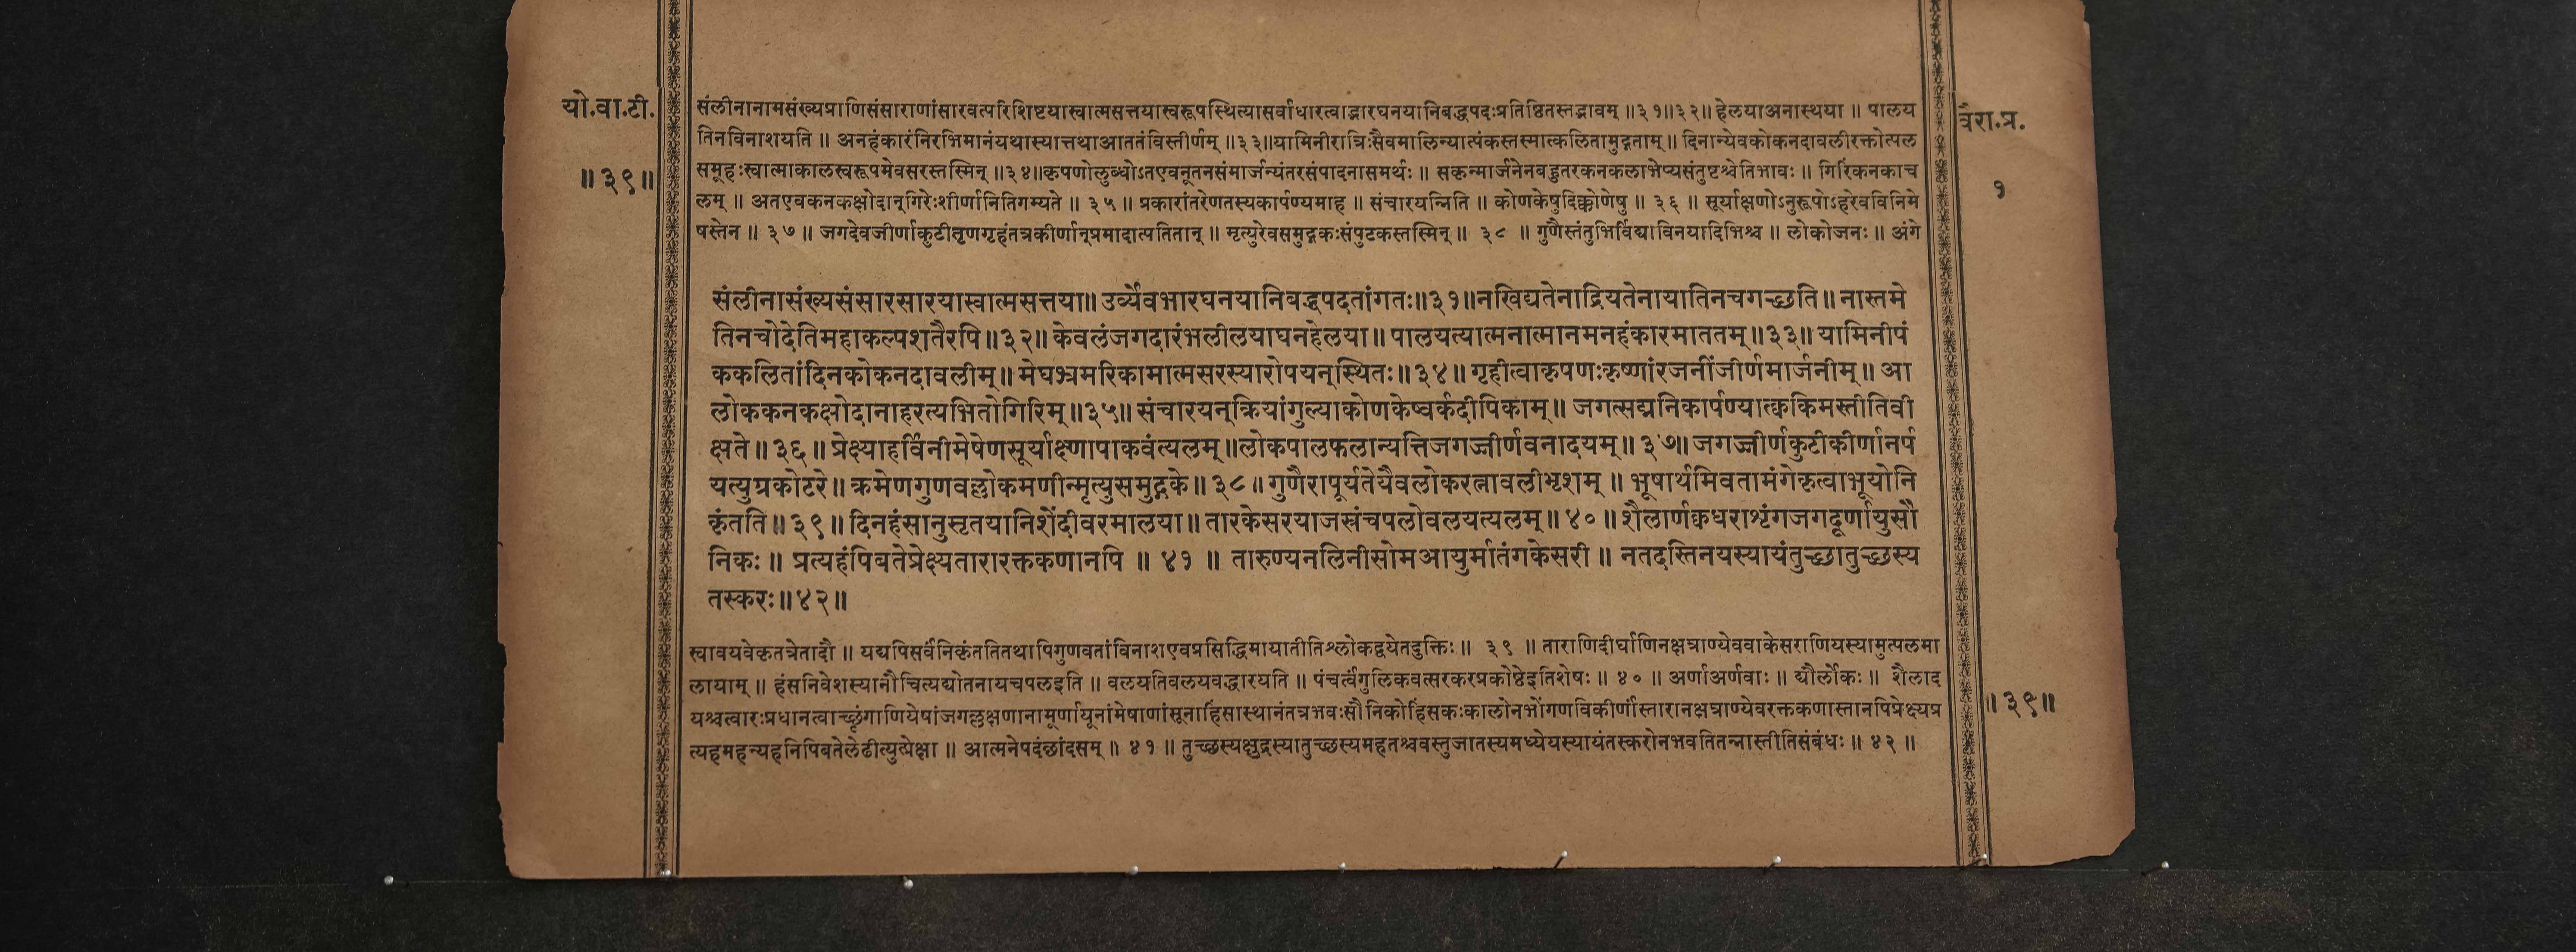 यो.वा.टी.
॥३९॥
संलीनानामसंख्यप्राणिसंसाराणांसारवत्परिशिष्टयास्वात्मसत्तयास्वरूपस्थित्यासर्वाधारत्वाद्भारघनयानिबद्धपदःप्रतिष्ठितस्तद्भावम् ॥३१॥३२॥ हेलयाअनास्थया ॥ पालय
तिनविनाशयति ॥ अनहंकारंनिरभिमानंयथास्यात्तथाआततंविस्तीर्णम् ॥३३॥यामिनीरात्रिःसैवमालिन्यात्पंकस्तस्मात्कलितामुद्गताम् ॥ दिनान्येवकोकनदावलीरक्तोत्पल
समूहःस्वात्माकालस्वरूपमेवसरस्तस्मिन् ॥३४॥कृपणोलुब्धोऽतएवनूतनसंमार्जन्यंतरसंपादनासमर्थः ॥ सकृन्मार्जनेनबहुतरकनकलाभेप्यसंतुष्टश्चेतिभावः ॥ गिरिंकनकाच
लम् ॥ अतएवकनकक्षोदान्गिरेःशीर्णानितिगम्यते ॥ ३५ ॥ प्रकारांतरेणतस्यकार्पण्यमाह ॥ संचारयन्निति ॥ कोणकेषुदिक्कोणेषु ॥ ३६ ॥ सूर्याक्षणोऽनुरूपोऽहरेवविनिमे
षस्तेन ॥ ३७ ॥ जगदेवजीर्णाकुटीतृणगृहंतत्रकीर्णान्प्रमादात्पतितान् ॥ मृत्युरेवसमुद्गकःसंपुटकस्तस्मिन् ॥ ३८ ॥ गुणैस्तंतुभिर्विद्याविनयादिभिश्च ॥ लोकोजनः ॥ अंगे
संलीनासंख्यसंसारसारयास्वात्मसत्तया॥ उर्व्येवभारघनयानिबद्धपदतांगतः॥३१॥नखिद्यतेनाद्रियतेनायातिनचगच्छति॥ नास्तमे
तिनचोदेतिमहाकल्पशतैरपि॥३२॥ केवलंजगदारंभलीलयाघनहेलया॥ पालयत्यात्मनात्मानमनहंकारमाततम्॥३३॥ यामिनीपं
ककलितांदिनकोकनदावलीम्॥ मेघभ्रमरिकामात्मसरस्यारोपयन्स्थितः॥३४॥ गृहीत्वाकृपणःकृष्णांरजनींजीर्णमार्जनीम्॥ आ
लोककनकक्षोदानाहरत्यभितोगिरिम्॥३५॥ संचारयन्क्रियांगुल्याकोणकेष्वर्कदीपिकाम्॥ जगत्सद्मनिकार्पण्यात्क्वकिमस्तीतिवी
क्षते॥३६॥ प्रेक्ष्याहर्विनीमेषेणसूर्याक्ष्णापाकवंत्यलम्॥लोकपालफलान्यत्तिजगज्जीर्णवनादयम्॥ ३७॥ जगज्जीर्णकुटीकीर्णानर्प
यत्युग्रकोटरे॥ क्रमेणगुणवल्लोकमणीन्मृत्युसमुद्गके॥ ३८॥ गुणैरापूर्यतेयैवलोकरत्नावलीभृशम् ॥ भूषार्थमिवतामंगेकृत्वाभूयोनि
कृंतति॥ ३९॥ दिनहंसानुसृतयानिशेंदीवरमालया॥ तारकेसरयाजस्रंचपलोवलयत्यलम्॥ ४०॥ शैलार्णक्वधराशृंगजगदूर्णायुसौ
निकः ॥ प्रत्यहंपिबतेप्रेक्ष्यतारारक्तकणानपि ॥ ४१ ॥ तारुण्यनलिनीसोमआयुर्मातंगकेसरी ॥ नतदस्तिनयस्यायंतुच्छातुच्छस्य
तस्करः॥४२॥
स्वावयवेकृतत्रेतादौ ॥ यद्यपिसर्वंनिकृंततितथापिगुणवतांविनाशएवप्रसिद्धिमायातीतिश्लोकद्वयेतदुक्तिः ॥ ३९ ॥ ताराणिदीर्घाणिनक्षत्राण्येववाकेसराणियस्यामुत्पलमा
लायाम् ॥ हंसनिवेशस्यानौचित्यद्योतनायचपलइति ॥ वलयतिवलयवद्धारयति ॥ पंचर्त्वंगुलिकवत्सरकरप्रकोष्ठेइतिशेषः ॥ ४० ॥ अर्णाअर्णवाः ॥ द्यौर्लोकः ॥ शैलाद
यश्चत्वारःप्रधानत्वाच्छृंगाणियेषांजगल्लक्षणानामूर्णायूनांमेषाणांसूनाहिंसास्थानंतत्रभवःसौनिकोहिंसकःकालोनभोंगणविकीर्णांस्तारानक्षत्राण्येवरक्तकणास्तानपिप्रेक्ष्यप्र
त्यहमहन्यहनिपिबतेलेढीत्युत्प्रेक्षा ॥ आत्मनेपदंछांदसम् ॥ ४१ ॥ तुच्छस्यक्षुद्रस्यातुच्छस्यमहतश्चवस्तुजातस्यमध्येयस्यायंतस्करोनभवतितन्नास्तीतिसंबंधः ॥ ४२ ॥
वैरा.प्र.
१
॥३९॥